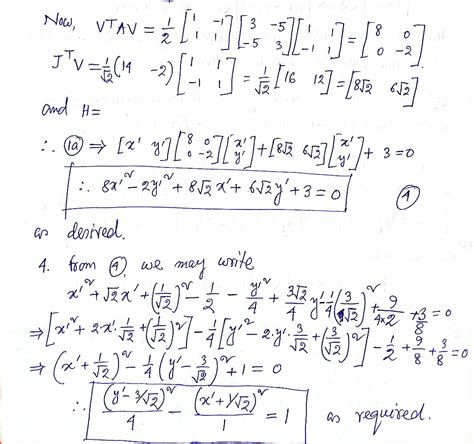 Now, VᵀAV = 1/2 [1 -1; 1 1] [3 -5; -5 3] [1 1; -1 1] = [8 0; 0 -2]
JᵀV = 1/√2 (14 -2) [1 1; -1 1] = 1/√2 [16 12] = [8√2 6√2]
and H=
∴ (1a) ⇒ [x' y'] [8 0; 0 -2] [x'; y'] + [8√2 6√2] [x'; y'] + 3 = 0
∴ 8x'² - 2y'² + 8√2 x' + 6√2 y' + 3 = 0 (1)
as desired.
4. from (1), we may write
x'² + √2 x' + (1/√2)² - 1/2 - y'²/4 + 3√2/4 y' - 1/4 (3/√2)² + 9/4×2 + 3/8 = 0
⇒ [x'² + 2·x'·1/√2 + (1/√2)²] - 1/4 [y'² - 2·y'·3/√2 + (3/√2)²] - 1/2 + 9/8 + 3/8 = 0
⇒ (x' + 1/√2)² - 1/4 (y' - 3/√2)² + 1 = 0
∴ (y' - 3/√2)²/4 - (x' + 1/√2)²/1 = 1 as required.